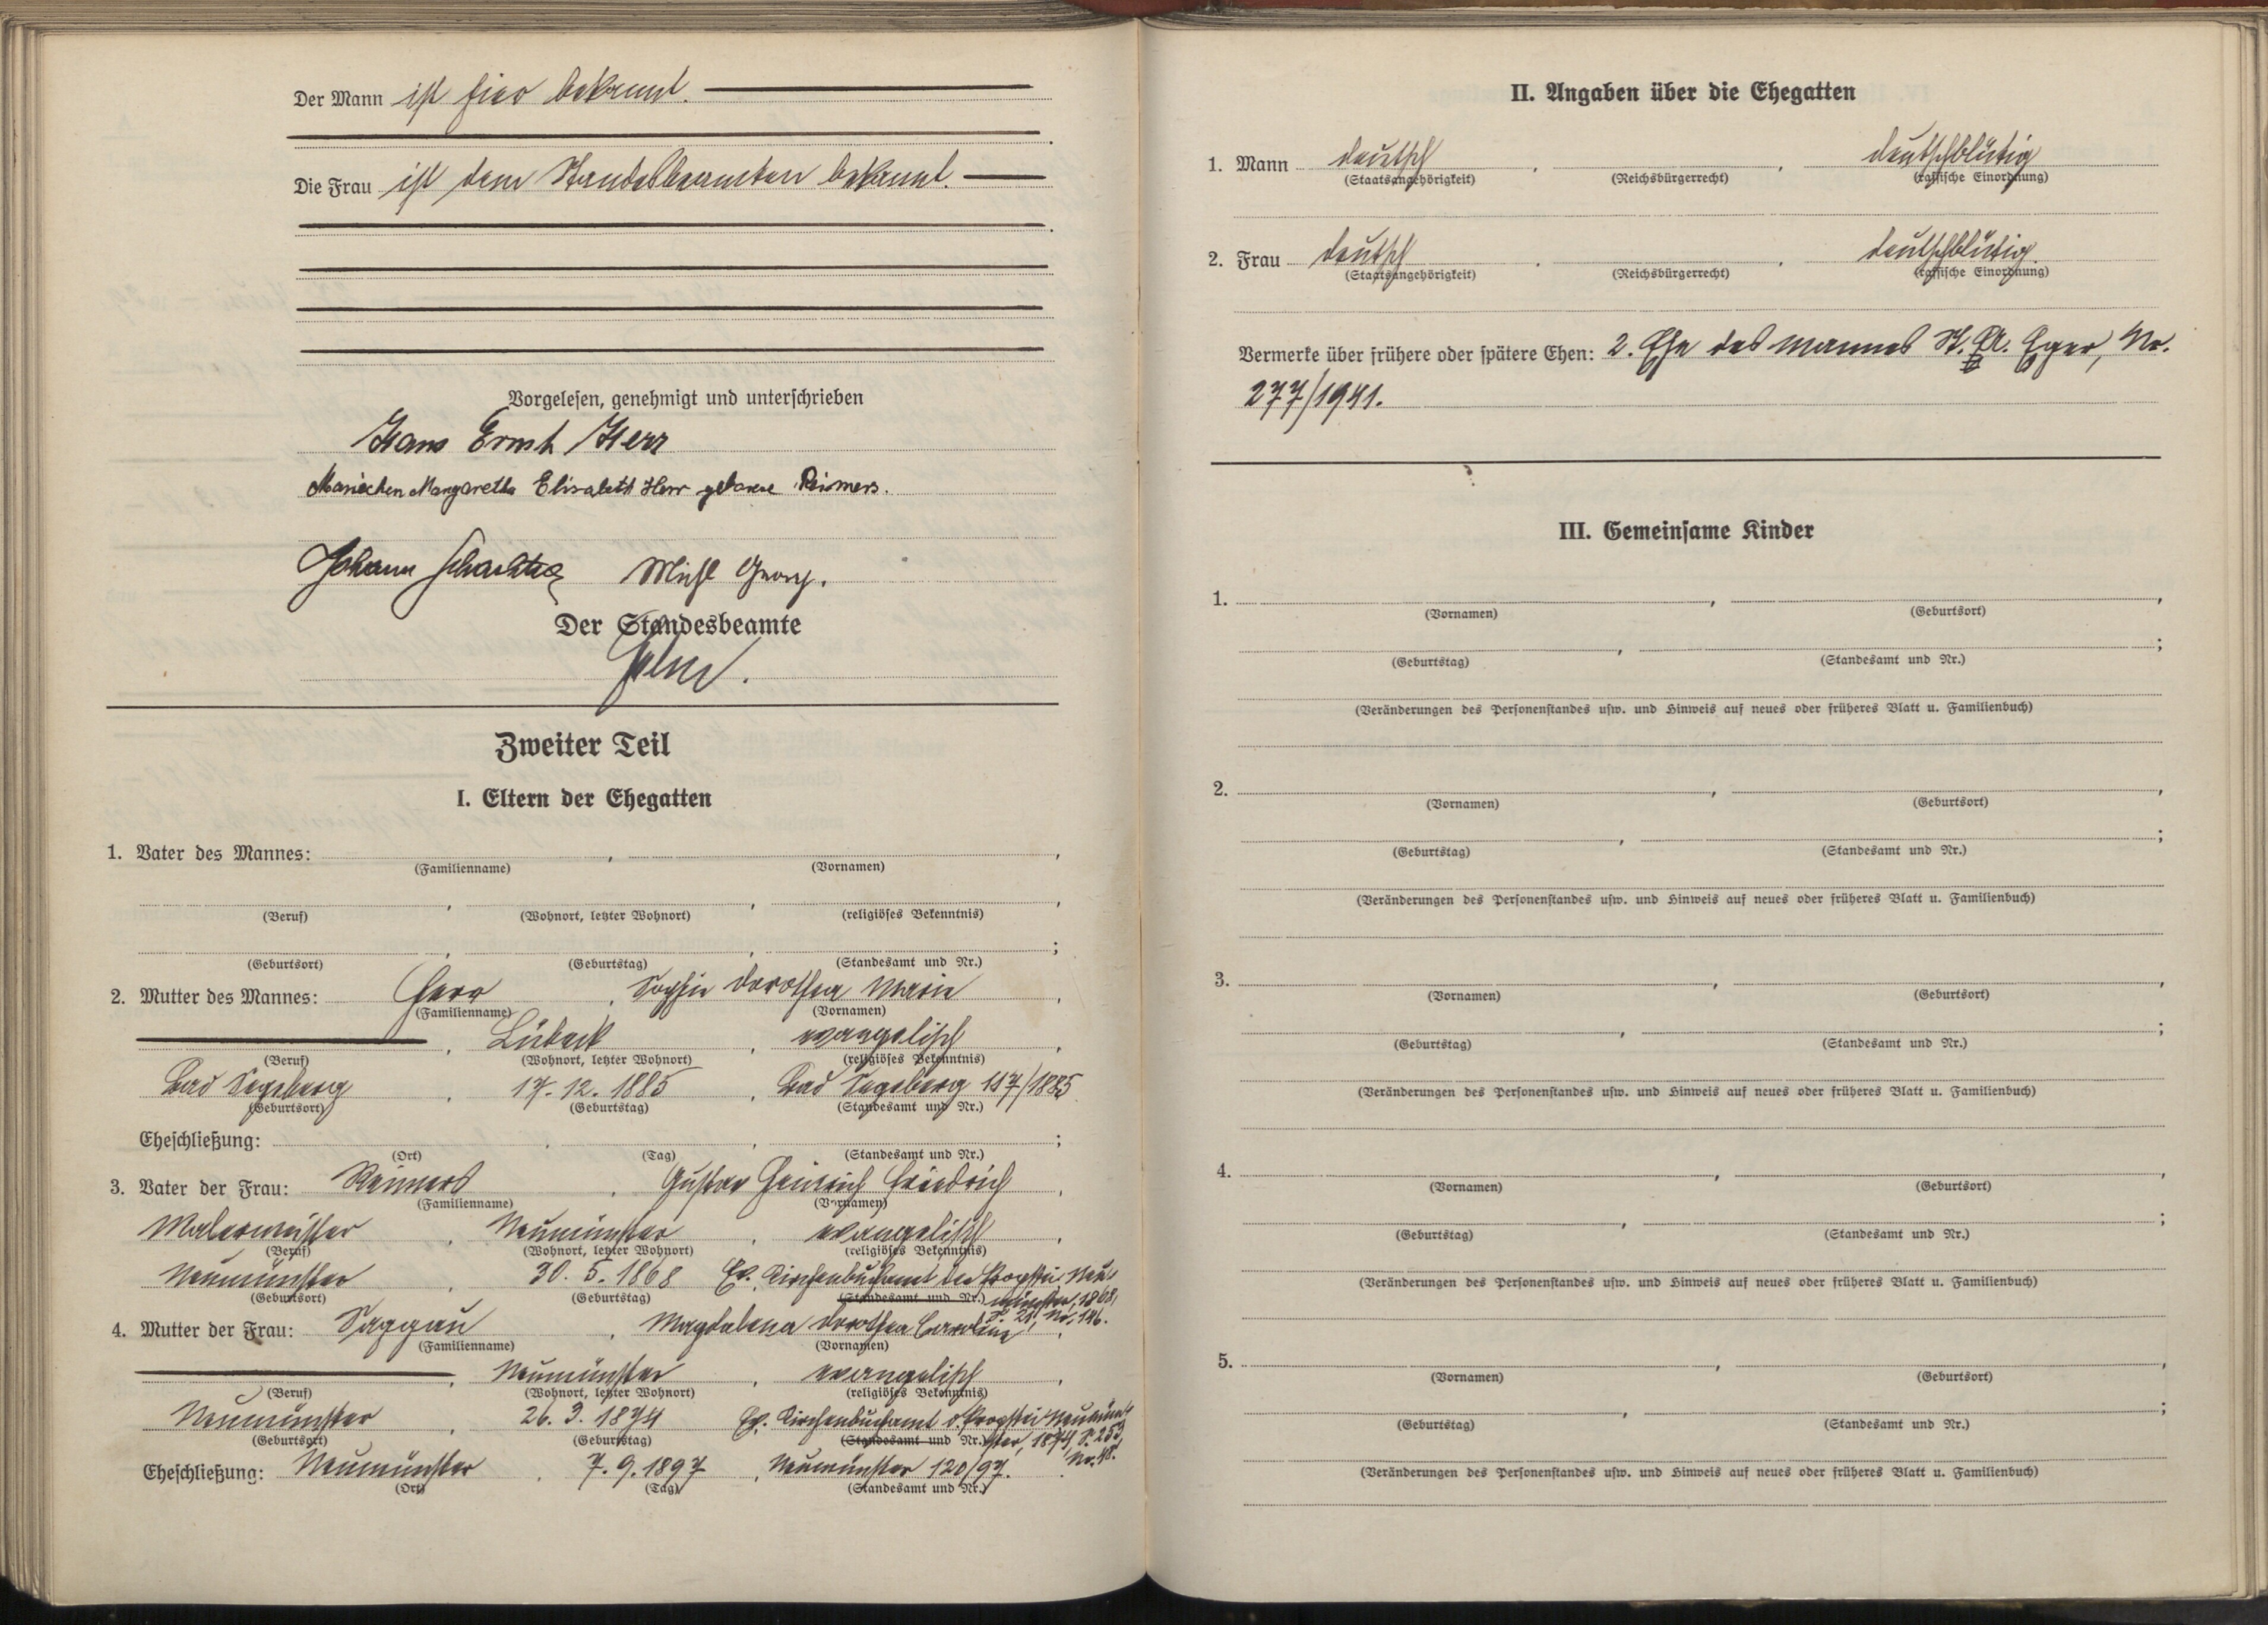 Der Mann ist hier bekannt.
Die Frau ist dem Standesbeamten bekannt.
Vorgelesen, genehmigt und unterschrieben
Hans Ernst Herr
Mariechen Margaretha Elisabeth Herr geborene Reimers.
Johann Michl Georg.
Der Standesbeamte
Zweiter Teil
I. Eltern der Ehegatten
1. Vater des Mannes: ,
(Familienname) (Vornamen)
, , ,
(Beruf) (Wohnort, letzter Wohnort) (religiöses Bekenntnis)
, , ;
(Geburtsort) (Geburtstag) (Standesamt und Nr.)
2. Mutter des Mannes: Herr, Sophie Dorothea Marie,
(Familienname) (Vornamen)
, Lübeck, evangelisch,
(Beruf) (Wohnort, letzter Wohnort) (religiöses Bekenntnis)
Bad Segeberg, 17. 12. 1885, Bad Segeberg 117/1885
(Geburtsort) (Geburtstag) (Standesamt und Nr.)
Eheschließung: , , ;
(Ort) (Tag) (Standesamt und Nr.)
3. Vater der Frau: Reimers, Gustav Heinrich Friedrich,
(Familienname) (Vornamen)
Malermeister, Neumünster, evangelisch,
(Beruf) (Wohnort, letzter Wohnort) (religiöses Bekenntnis)
Neumünster, 30. 5. 1868 Ev. Kirchenbuchamt der Propstei Neu-
(Geburtsort) (Geburtstag) (Standesamt und Nr.) münster, 1868,
S. 21, Nr. 146.
4. Mutter der Frau: Saggau, Magdalena Dorothea Caroline,
(Familienname) (Vornamen)
, Neumünster, evangelisch,
(Beruf) (Wohnort, letzter Wohnort) (religiöses Bekenntnis)
Neumünster, 26. 3. 1874 Ev. Kirchenbuchamt d. Propstei Neumün-
(Geburtsort) (Geburtstag) (Standesamt und Nr.) ster, 1874, S. 253,
Nr. 48.
Eheschließung: Neumünster, 7. 9. 1897, Neumünster 120/97.
(Ort) (Tag) (Standesamt und Nr.)
II. Angaben über die Ehegatten
1. Mann deutsch, , deutschblütig
(Staatsangehörigkeit) (Reichsbürgerrecht) (rassische Einordnung)
2. Frau deutsch, , deutschblütig.
(Staatsangehörigkeit) (Reichsbürgerrecht) (rassische Einordnung)
Vermerke über frühere oder spätere Ehen: 2. Ehe des Mannes St. A. Eger, Nr.
277/1941.
III. Gemeinsame Kinder
1. , ,
(Vornamen) (Geburtsort)
, ;
(Geburtstag) (Standesamt und Nr.)
(Veränderungen des Personenstandes usw. und Hinweis auf neues oder früheres Blatt u. Familienbuch)
2. , ,
(Vornamen) (Geburtsort)
, ;
(Geburtstag) (Standesamt und Nr.)
(Veränderungen des Personenstandes usw. und Hinweis auf neues oder früheres Blatt u. Familienbuch)
3. , ,
(Vornamen) (Geburtsort)
, ;
(Geburtstag) (Standesamt und Nr.)
(Veränderungen des Personenstandes usw. und Hinweis auf neues oder früheres Blatt u. Familienbuch)
4. , ,
(Vornamen) (Geburtsort)
, ;
(Geburtstag) (Standesamt und Nr.)
(Veränderungen des Personenstandes usw. und Hinweis auf neues oder früheres Blatt u. Familienbuch)
5. , ,
(Vornamen) (Geburtsort)
, ;
(Geburtstag) (Standesamt und Nr.)
(Veränderungen des Personenstandes usw. und Hinweis auf neues oder früheres Blatt u. Familienbuch)